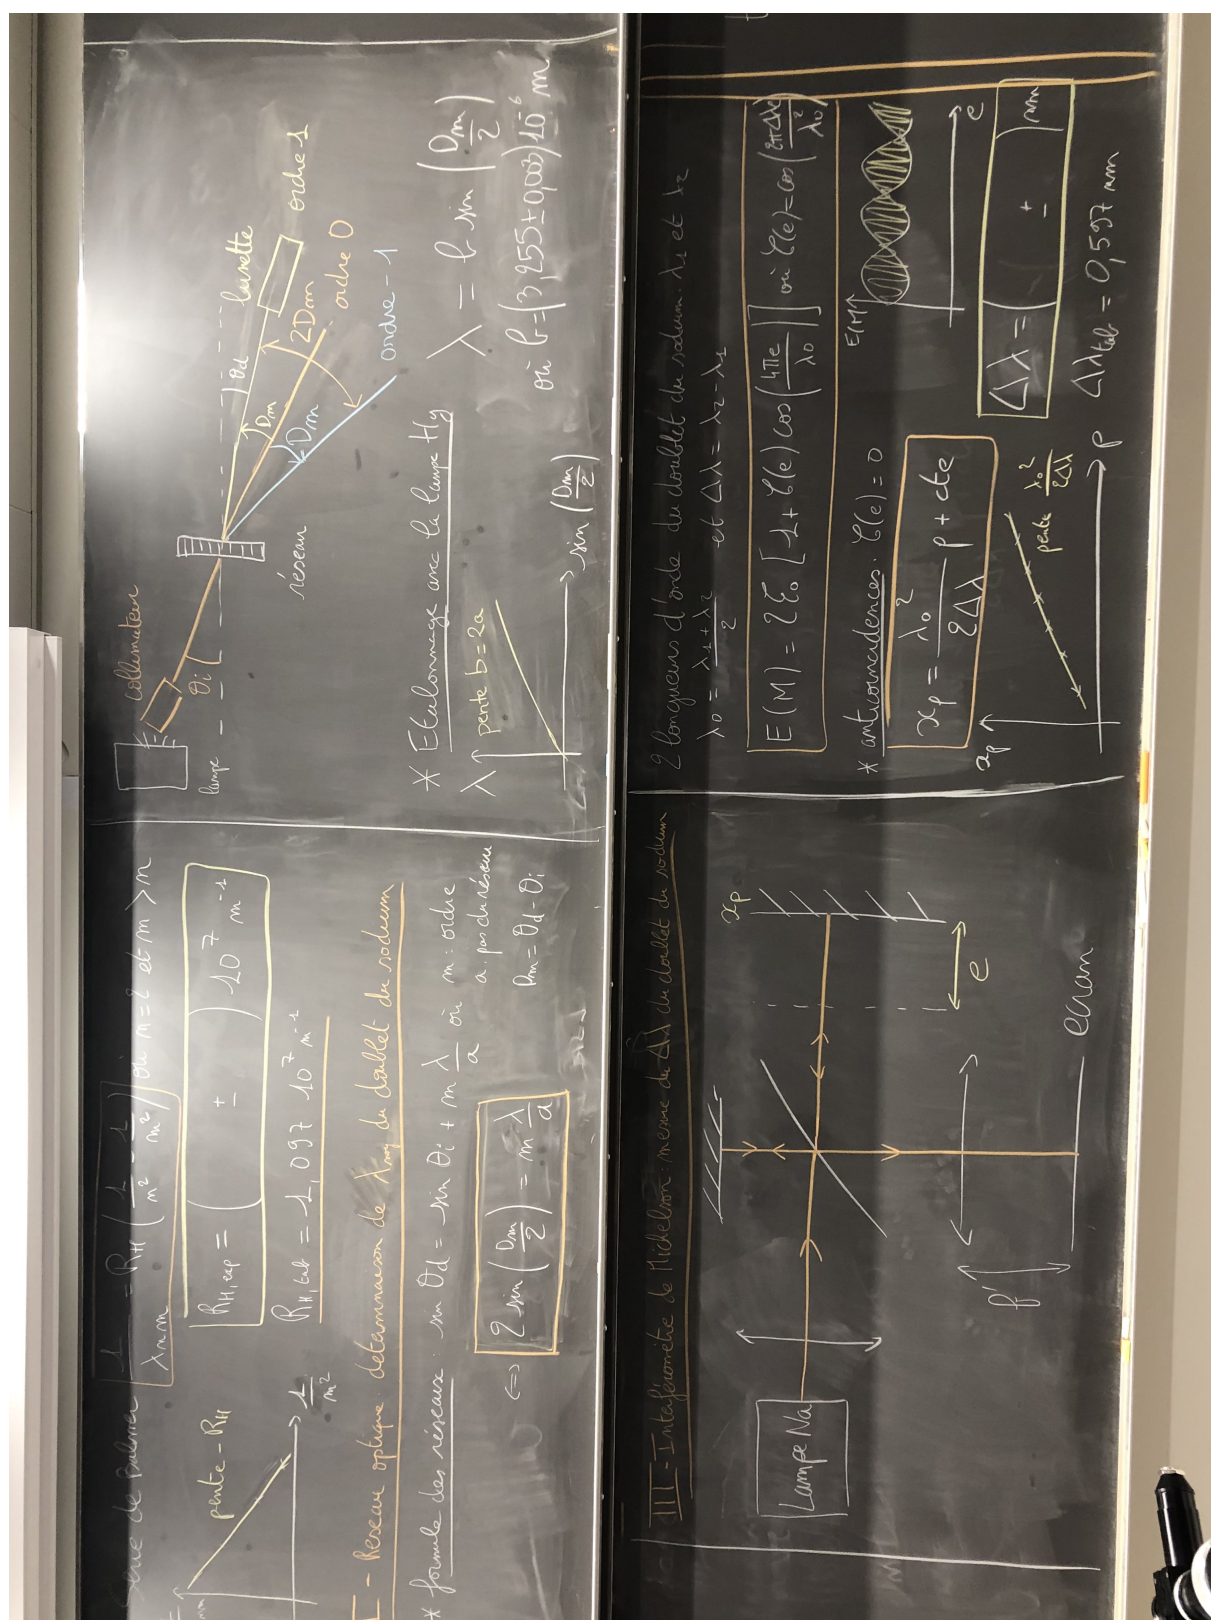 Série de Balmer
1/λn,m = RH (1/n² - 1/m²) où n=2 et m>n
pente - RH
1/m²
RH,exp = ( ± ) 10⁷ m⁻¹
RH,tab = 1,097 10⁷ m⁻¹
- Réseau optique : détermination de λmoy du doublet du sodium
* formule des réseaux : sin θd = sin θi + m λ/a où m : ordre
a : pas du réseau
Dm = θd - θi
<=> 2 sin (Dm/2) = m λ/a
lampe
collimateur
θi
réseau
θd
lunette
Dm
Dm
2Dm
ordre 1
ordre 0
ordre -1
* Etalonnage avec la lampe Hg
λ
pente b=2a
sin (Dm/2)
λ = b sin (Dm/2)
où b=(3,255±0,003)10⁻⁶ m
III - Interféromètre de Michelson : mesure du Δλ du doublet du sodium
Lampe Na
xp
e
f'
écran
2 longueurs d'onde du doublet du sodium : λ1 et λ2
λ0 = (λ1+λ2)/2 et Δλ = λ2 - λ1
E(M) = 2ℰ0 [1+ℰ(e) cos(4πe/λ0)] où ℰ(e)=cos(2πΔλe/λ0²)
* anticoïncidences : ℰ(e) = 0
E(M)
e
xp = λ0²/2Δλ p + cte
xp
pente λ0²/2Δλ
p
Δλ = ( ± ) nm
Δλtab = 0,597 nm